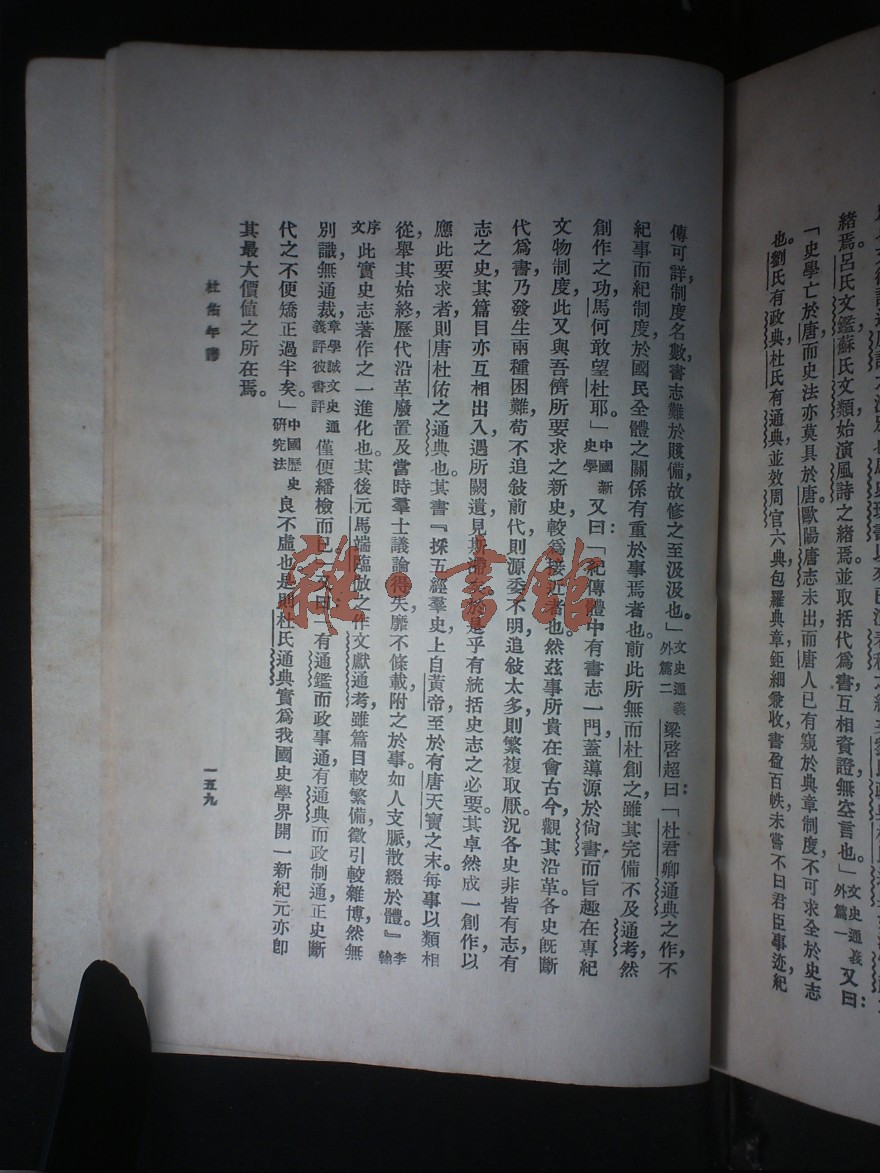 緒焉。呂氏文鑑、蘇氏文類、始演風詩之緒焉。並取括代爲書、互相資證、無空言也。」文史通義外篇一 又曰：
「史學亡於唐、而史法亦莫具於唐。歐陽唐志未出、而唐人已有窺於典章制度、不可求全於史志
也。劉氏有政典、杜氏有通典、並效周官六典、包羅典章、鉅細兼收、書盈百帙。未嘗不曰君臣事迹、紀
傳可詳、制度名數、書志難於賅備、故修之至汲汲也。」文史通義外篇二 梁啓超曰：「杜君卿通典之作、不
紀事而紀制度。於國民全體之關係、有重於事焉者也。前此所無、而杜創之、雖其完備不及通考、然
創作之功、馬何敢望杜耶。」中國新史學 又曰：「紀傳體中有書志一門、蓋導源於尙書、而旨趣在專紀
文物制度、此又與吾儕所要求之新史較爲接近者也。然茲事所貴在會古今、觀其沿革。各史既斷
代爲書、乃發生兩種困難、苟不追敍前代、則源委不明、追敍太多、則繁複取厭。況各史非皆有志、有
志之史、其篇目亦互相出入、遇所闕遺、見斯滯矣。於是乎有統括史志之必要。其卓然成一創作以
應此要求者、則唐杜佑之通典也。其書『採五經羣史、上自黃帝、至於有唐天寶之末、每事以類相
從、舉其始終、歷代沿革廢置、及當時羣士議論得失、靡不條載、附之於事。如人支脈、散綴於體。』李翰
序文 此實史志著作之一進化也。其後元馬端臨倣之作文獻通考、雖篇目較繁備、徵引較雜博、然無
別識、無通裁、章學誠文史通義評彼書評 僅便繙檢而已。」又曰：「有通鑑而政事通、有通典而政制通、正史斷
代之不便、矯正過半矣。」中國歷史研究法 良不虛也。是則杜氏通典、實爲我國史學界開一新紀元、亦卽
其最大價值之所在焉。
杜佑年譜
一五九
雜·書館